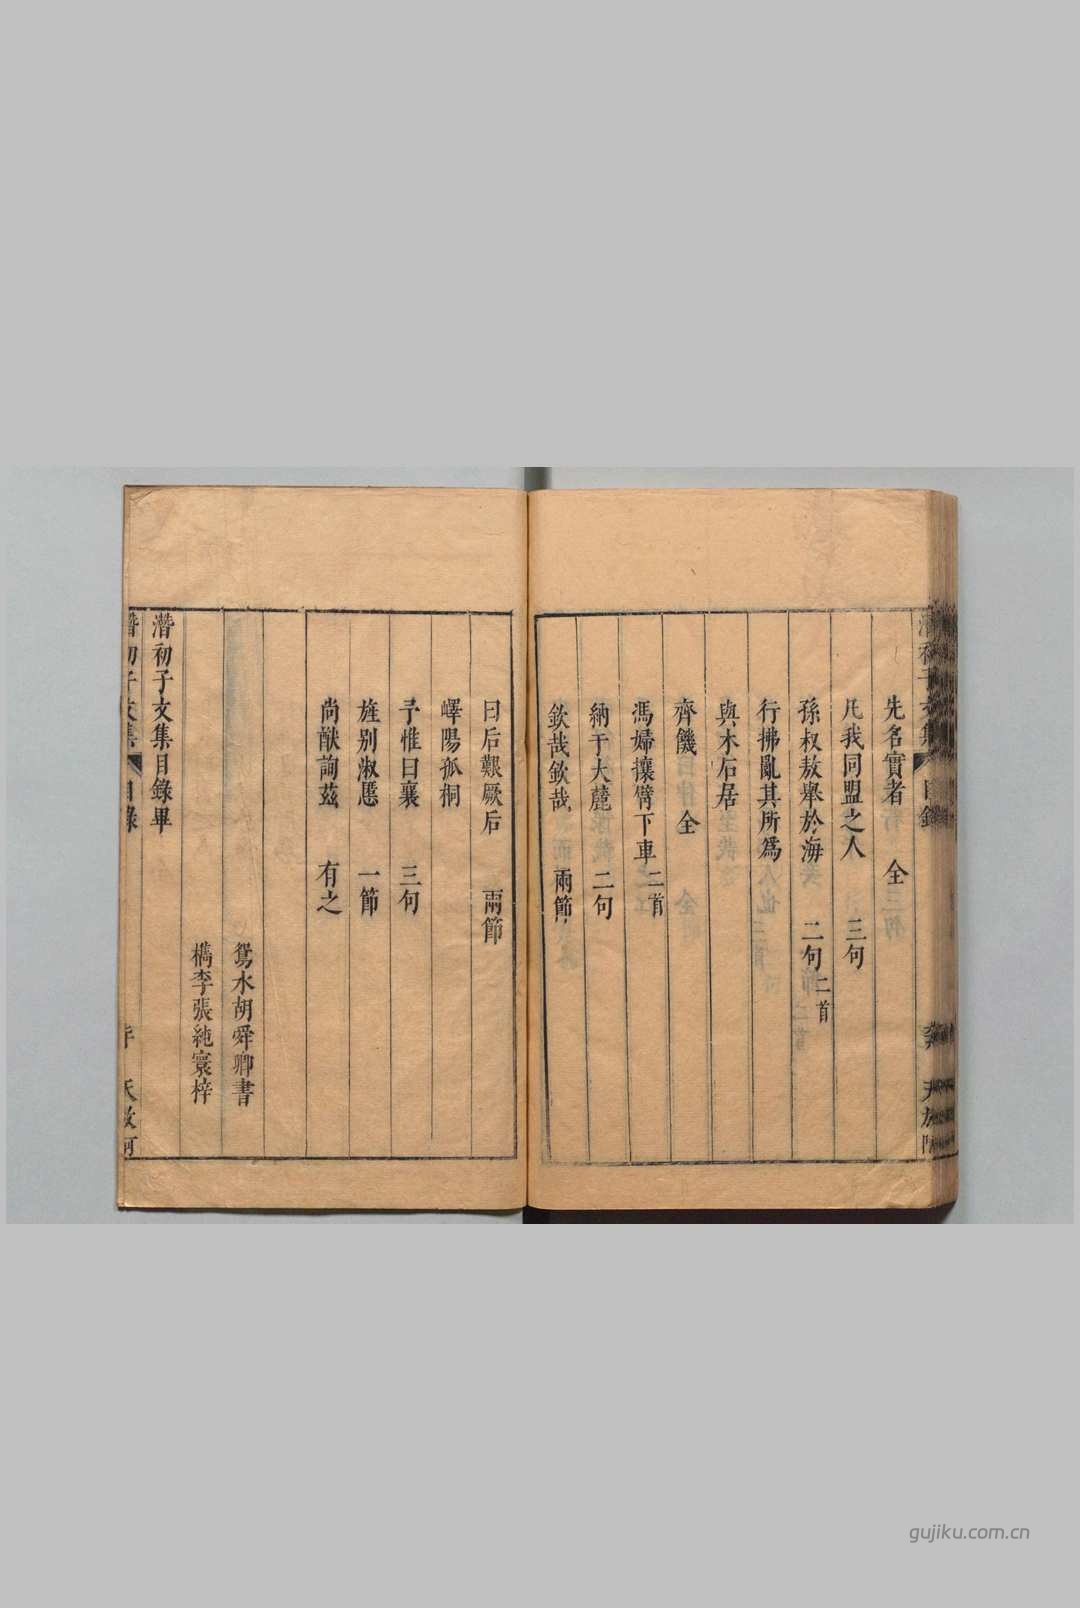 先名實者　全
凡我同盟之人　三句
孫叔敖舉於海　二句二首
行拂亂其所為
與木石居
齊饑　全
馮婦攘臂下車二首
納于大麓二句
欽哉欽哉　兩節
曰后艱厥后　兩節
嶧陽孤桐
予惟曰襄　三句
旌别淑慝　一節
尚猷詢茲　有之
鴛水胡舜卿書
檇李張純寰梓
潛初子文集目錄畢
gujiku.com.cn